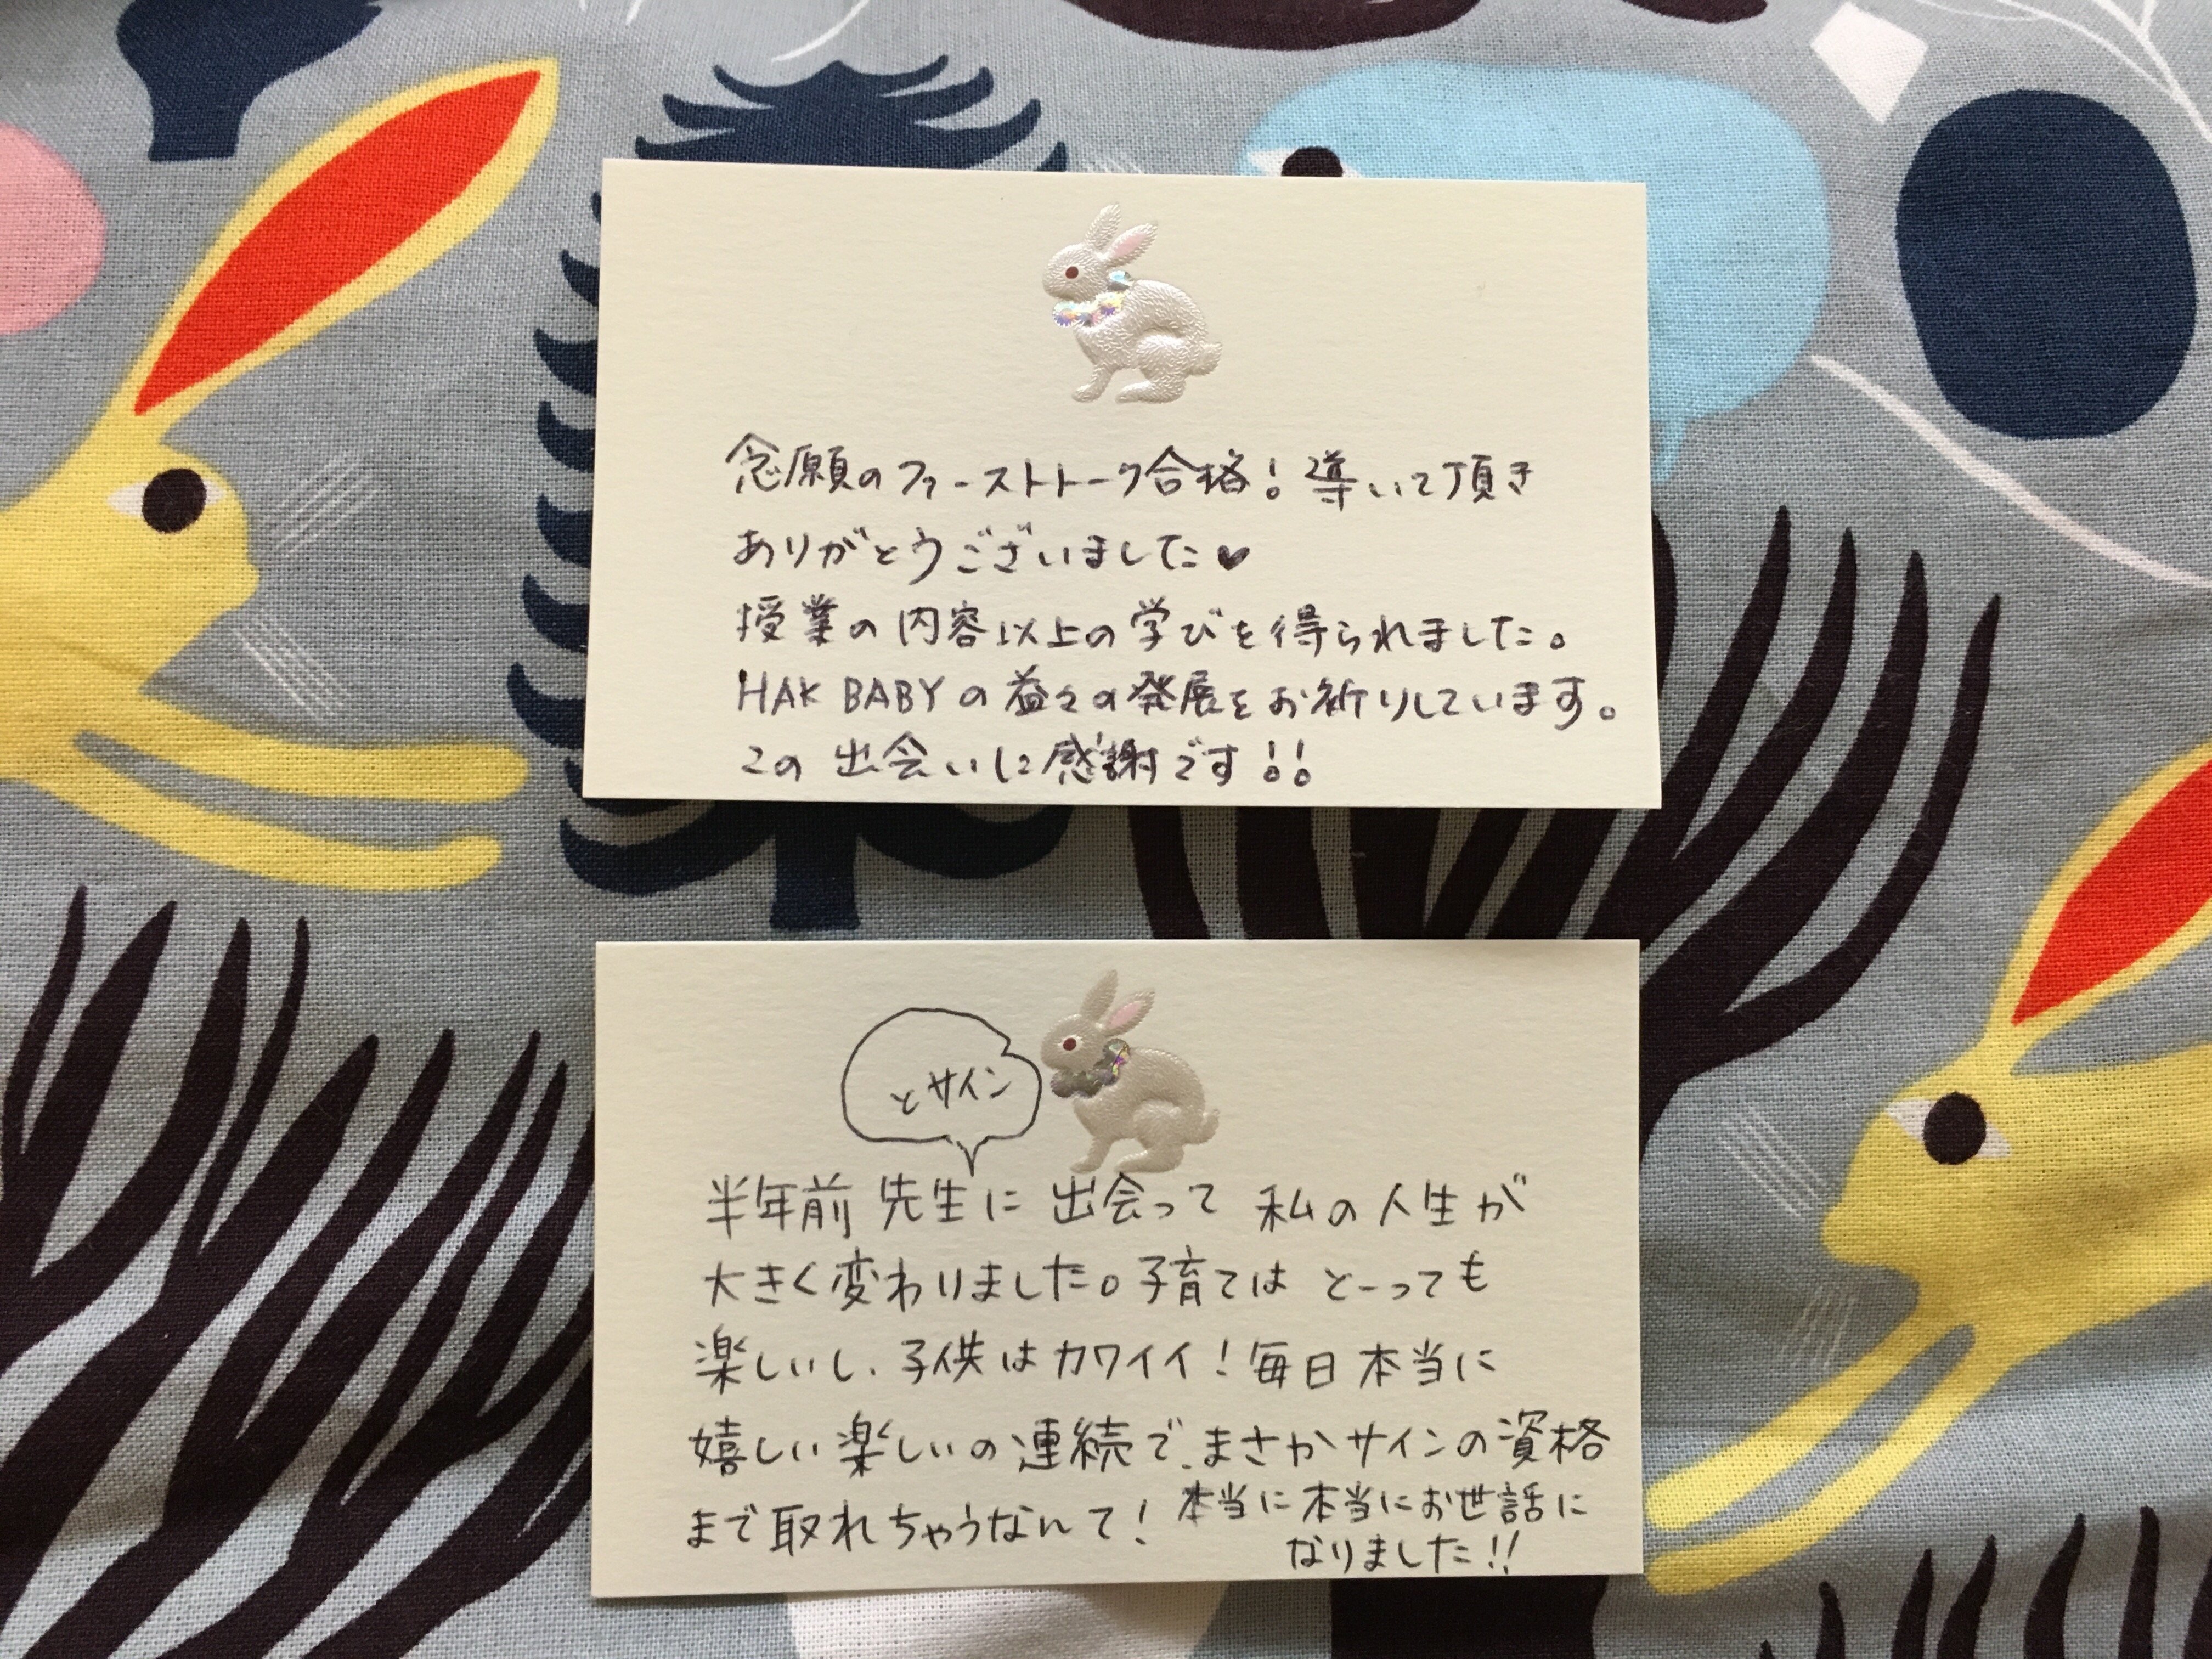 念願のファーストトーク合格！導いて頂き
ありがとうございました♥
授業の内容以上の学びを得られました。
HAK BABYの益々の発展をお祈りしています。
この出会いに感謝です！！
とサイン
半年前 先生に 出会って 私の人生が
大きく変わりました。子育ては とーっても
楽しいし、子供はカワイイ！毎日本当に
嬉しい楽しいの連続で、まさかサインの資格
まで取れちゃうなんて！
本当に本当にお世話に
なりました！！